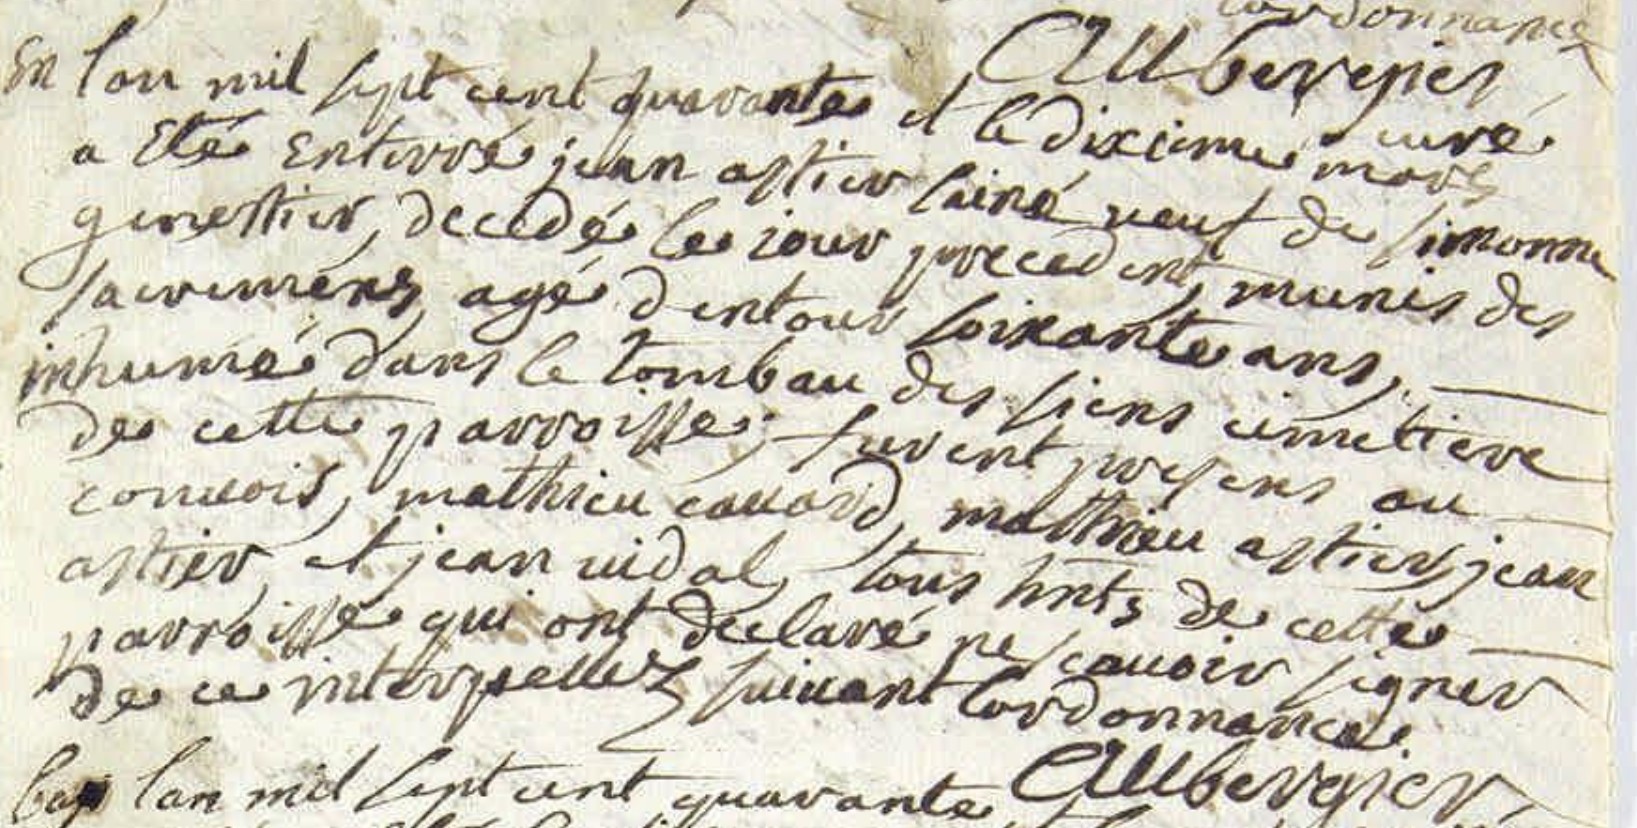 lordonnance
Aubergier
curé
En lan mil sept cent quarante et le dixieme mars
a Eté Enterré jean astier lainé veuf de simonne
ginestier, decedé le iour precedent, munis des
sacremens, agé dentour soixante ans,
inhumé dans le tombau des siens cimetiere
de cette parroisse; furent presens au
conuois, mathieu couard, matthieu astier, jean
astier, et jean uidal, tous hnts de cette
parroisse qui ont declaré ne scauoir signer
de ce interpellez suiuant lordonnance.
Aubergier,
bap lan mil sept cent quarante